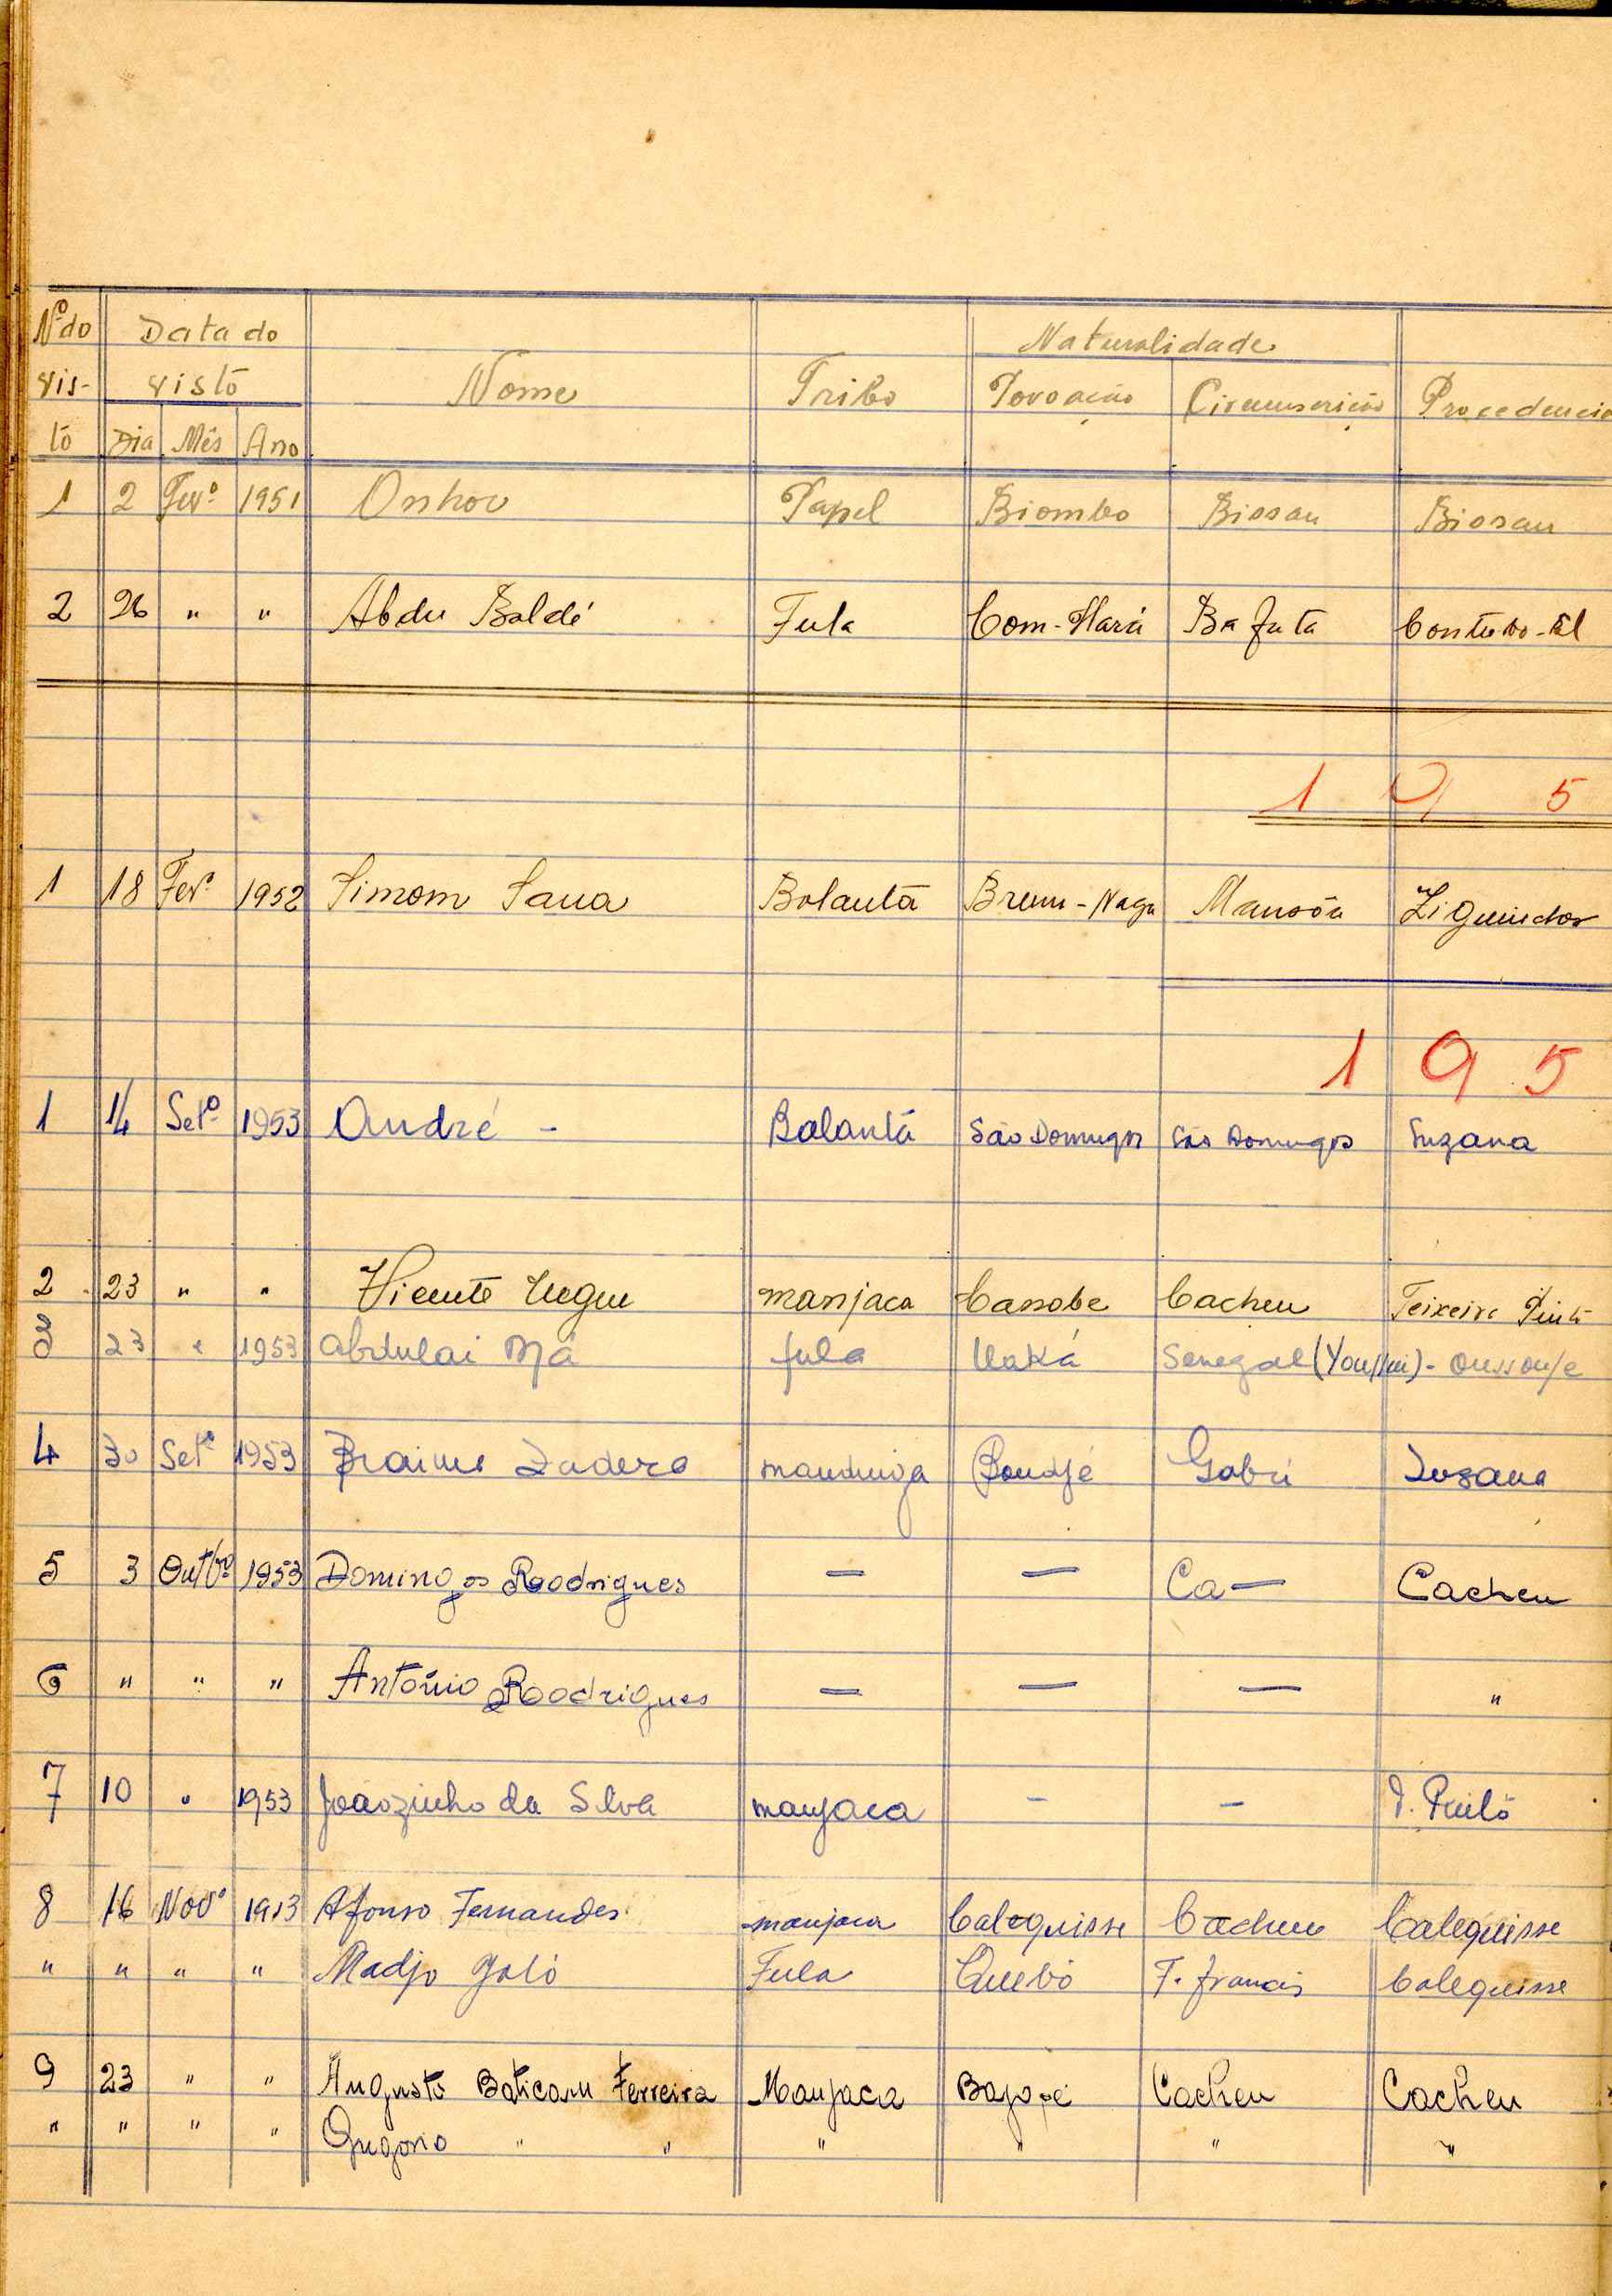 Nº do Data do Naturalidade
vis- visto Nome Tribo Povoação Circunscrição Procedencia
to Dia Mês Ano
1 2 Fevº 1951 Onhov Papel Biombo Bissau Bissau
2 26 " " Abdu Baldé Fula Com-Hará Bafatá Contubo-El
1 9 5
1 18 Fevº 1952 Simom Sana Balanta Mansôa Ziguinchor
1 9 5
1 14 Setº 1953 André - Balantá São Domingos São Domingos Suzana
2 23 " " Vicente manjaca Canobe Cacheu Teixeira Pinto
3 23 " 1953 Abdulai fula Senegal - Oussouye
4 30 Setº 1953 Braima mandinga Gabú Suzana
5 3 Outbrº 1953 Domingos Roodrigues — — Ca— Cacheu
6 " " " António Roodrigues — — — "
7 10 " 1953 Joãozinho da Silva manjaca - - T. Pinto
8 16 Novº 1953 Afonso Fernandes manjaca Calequisse Cacheu Calequisse
" " " " Madjo Galó Fula Quebó F. francês Calequisse
9 23 " " Augusto Baticam Ferreira Manjaca Cacheu Cacheu
" " " " Gregorio " " " " " "